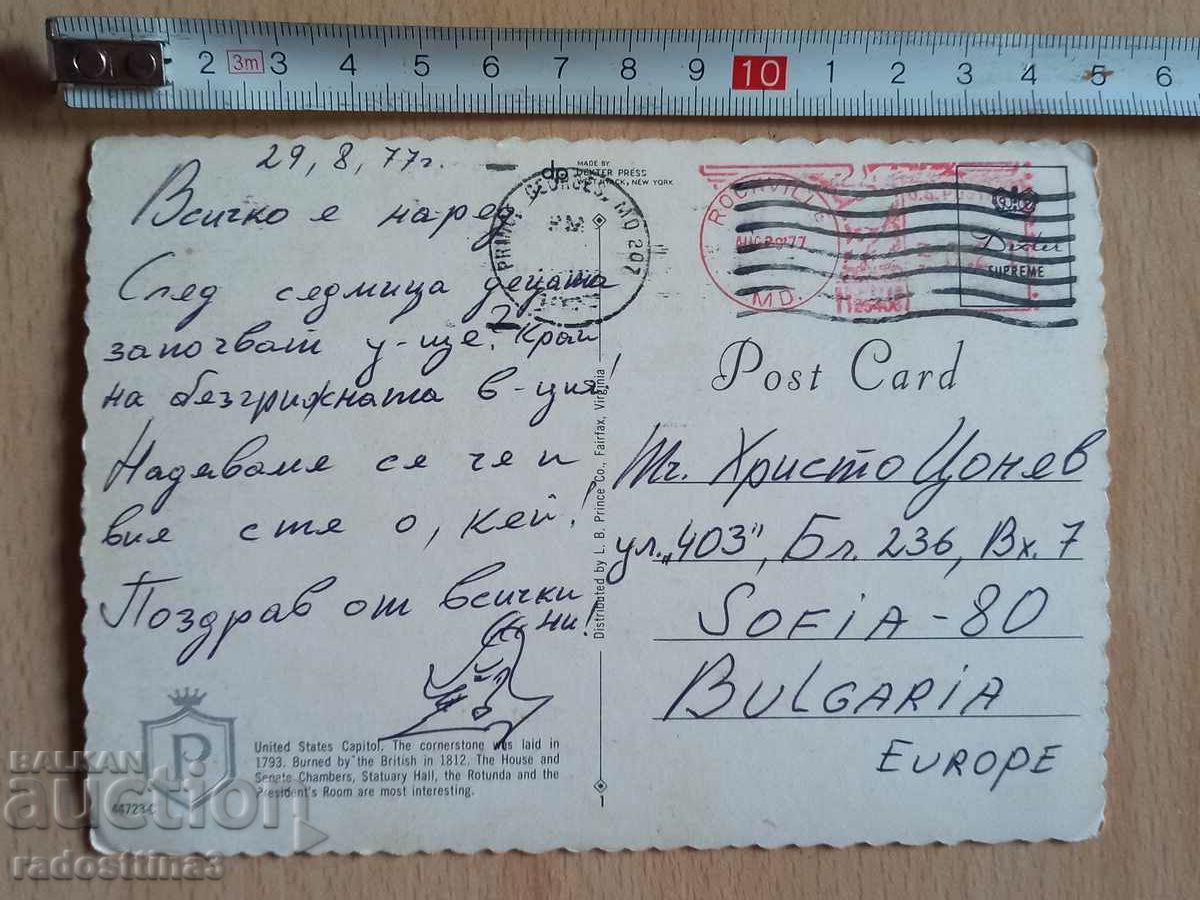 2 3m 3 4 5 6 7 8 9 10 1 2 3 4 5 6
29, 8, 77г.
Всичко е на-ред.
След седмица децата
започват у-ще. Край
на безгрижната в-ция!
Надяваме се че и
вие сте о, кей!
Поздрав от всички
ни!
United States Capitol. The cornerstone was laid in
1793. Burned by the British in 1812. The House and
Senate Chambers, Statuary Hall, the Rotunda and the
President's Room are most interesting.
44723-C
P
dp
MADE BY
DEXTER PRESS
WEST NYACK, NEW YORK
PRINCE GEORGES, MD 207
PM
Distributed by L. B. Prince Co., Fairfax, Virginia
1
ROCKVILLE
AUG 29 '77
MD.
U.S. POSTAGE
Dexter
SUPREME
Post Card
Тч. Христо Цонев
ул. „403", Бл. 236, Вх. 7
SOFIA - 80
BULGARIA
EUROPE
BALKAN
auction
radosttina3